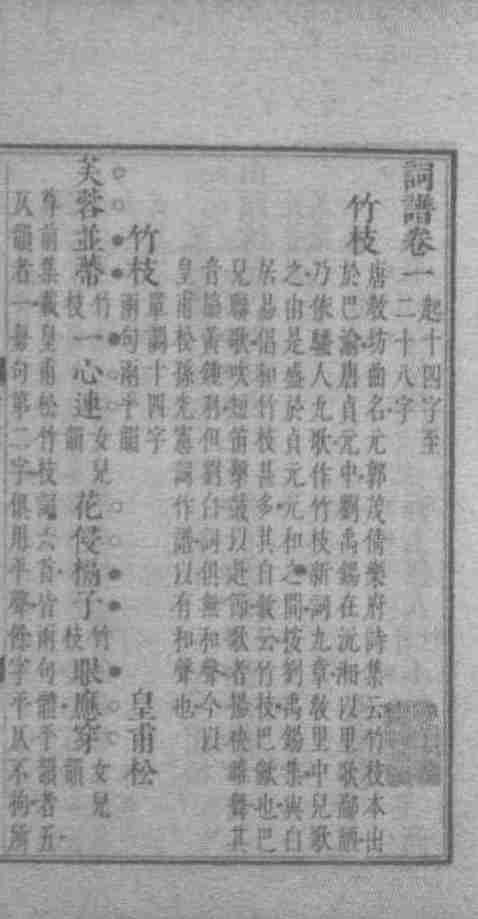 詞譜卷一 起十四字至
二十八字
竹枝 唐敎坊曲名元郭茂倩樂府詩集云竹枝本出
於巴渝唐貞元中劉禹錫在沅湘以里歌鄙陋
乃依騷人九歌作竹枝新詞九章敎里中兒歌
之由是盛於貞元元和之間按劉禹錫集與白
居易倡和竹枝甚多其自敘云竹枝巴歈也巴
兒聯歌吹短笛擊鼓以赴節歌者揚袂睢舞其
音協黃鐘羽但劉白詞俱無和聲今以
皇甫松孫光憲詞作譜以有和聲也
竹枝 單調十四字
兩句兩平韻 皇甫松
芙蓉並蒂竹枝一心連女兒韻花侵槅子竹枝眼應穿女兒韻
尊前集載皇甫松竹枝詞六首皆兩句體平韻者五
仄韻者一每句第二字俱用平聲餘字平仄不拘所